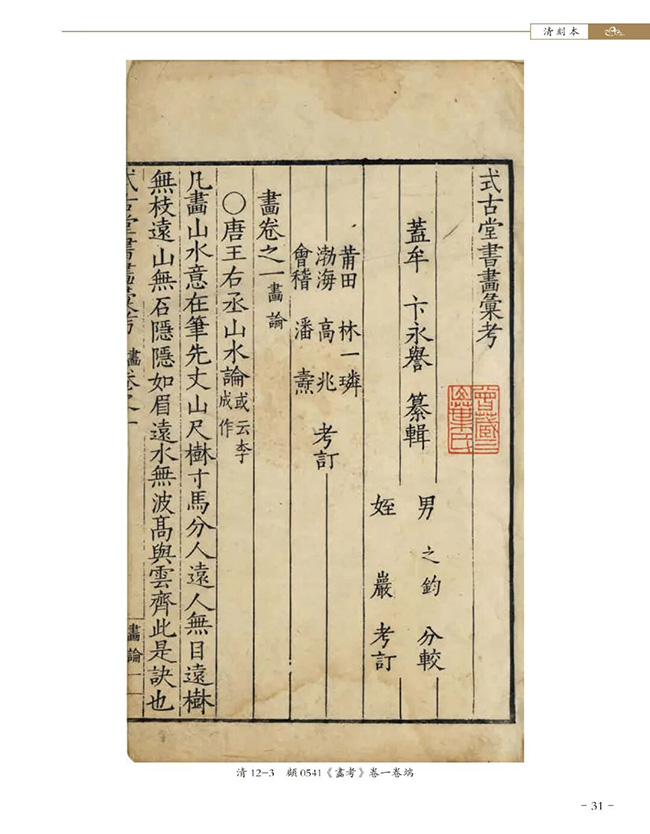 清刻本
式古堂書畫彙考
蓋牟 卞永譽 纂輯
男 之鈞 分較
姪 巖 考訂
莆田 林一璘
渤海 高兆 考訂
會稽 潘燾
畫卷之一 畫論
〇唐王右丞山水論 或云李成作
凡畫山水意在筆先丈山尺樹寸馬分人遠人無目遠樹
無枝遠山無石隱隱如眉遠水無波高與雲齊此是訣也
式古堂書畫彙考 畫卷之一
畫論
清12-3 顧0541《畫考》卷一卷端
- 31 -